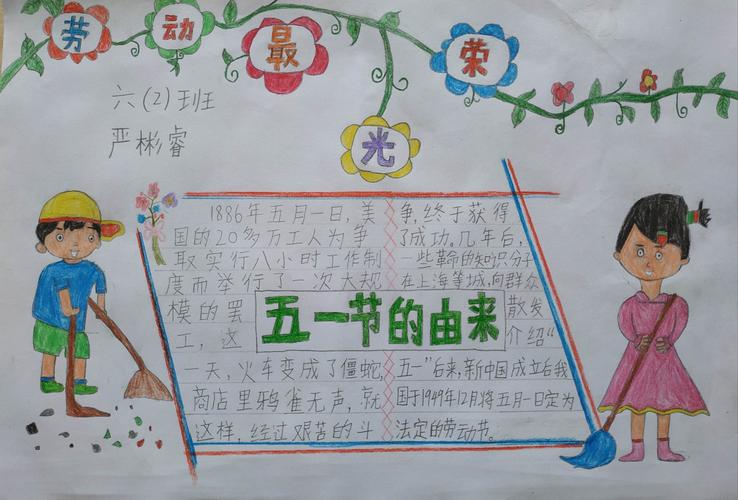 劳动最光荣
六(2)班
严彬睿
五一节的由来
1886年五月一日,美
国的20多万工人为争
取实行八小时工作制
度而举行了一次大规
模的罢
工,这
一天,火车变成了僵蛇,
商店里鸦雀无声,就
这样,经过艰苦的斗
争,终于获得
了成功。几年后,
一些革命的知识分子
在上海等城,向群众
散发
介绍“
五一”后来,新中国成立后我
国于1949年12月将五月一日定为
法定的劳动节。